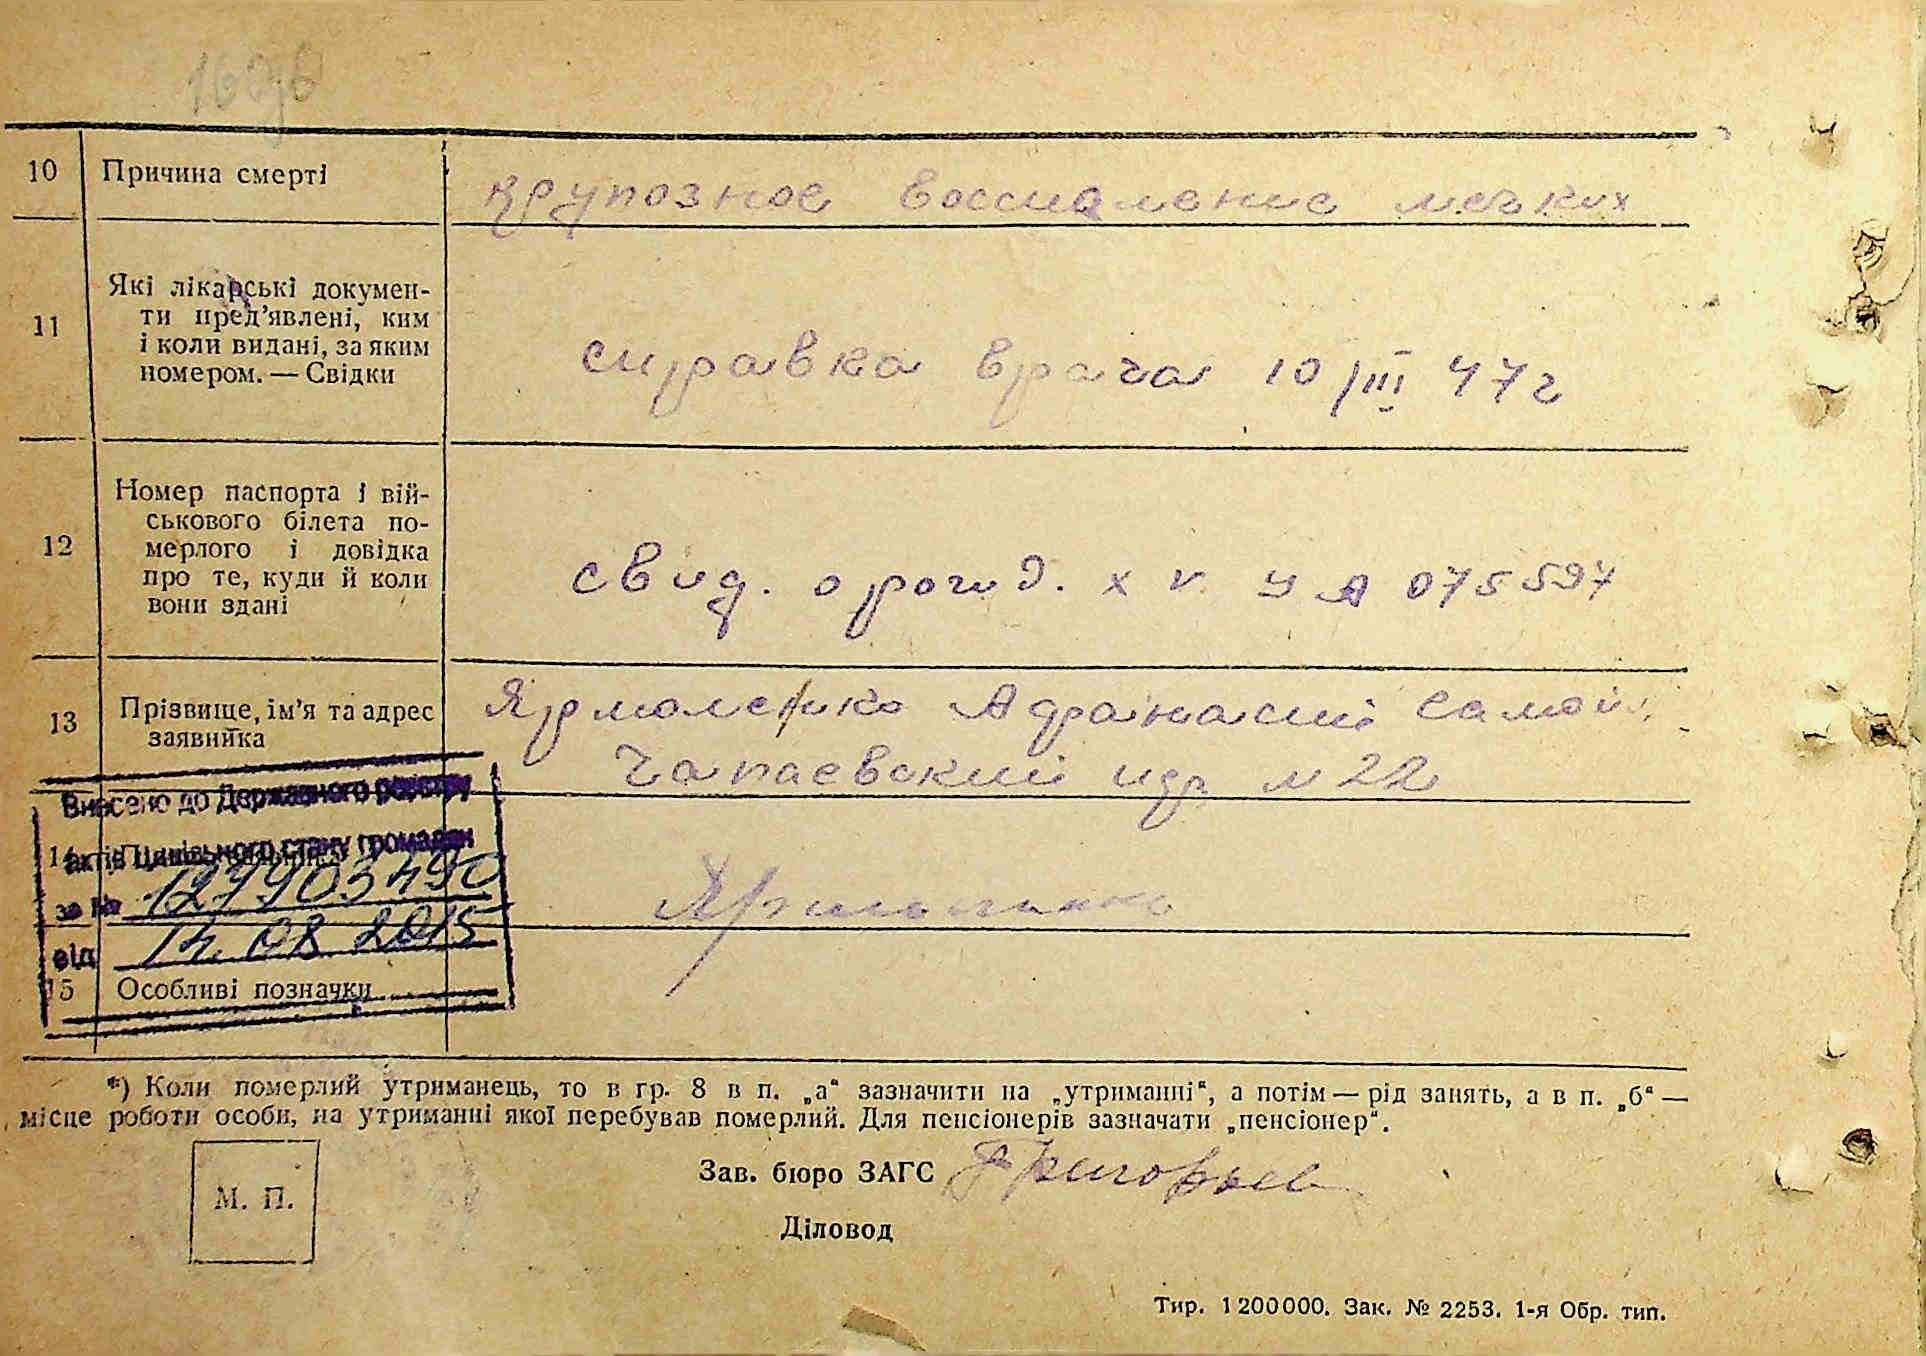 10 Причина смерті
крупозное воспаление легких
11 Які лікарські докумен-
ти пред’явлені, ким
і коли видані, за яким
номером. — Свідки
справка врача 10/III 47 г
12 Номер паспорта і вій-
ськового білета по-
мерлого і довідка
про те, куди й коли
вони здані
свид. о рожд. УА 075597
13 Прізвище, ім’я та адрес
заявника
Ярмоленко Афанасий Самойл.
Чапаевский пер № 22
Внесено до Державного реєстру
актів цивільного стану громадян
за № 127903490
від 14.08.2015
14
15 Особливі позначки
*) Коли померлий утриманець, то в гр. 8 в п. „а“ зазначити на „утриманні“, а потім — рід занять, а в п. „б“ —
місце роботи особи, на утриманні якої перебував померлий. Для пенсіонерів зазначати „пенсіонер“.
М. П.
Зав. бюро ЗАГС
Діловод
Тир. 1200000. Зак. № 2253. 1-я Обр. тип.